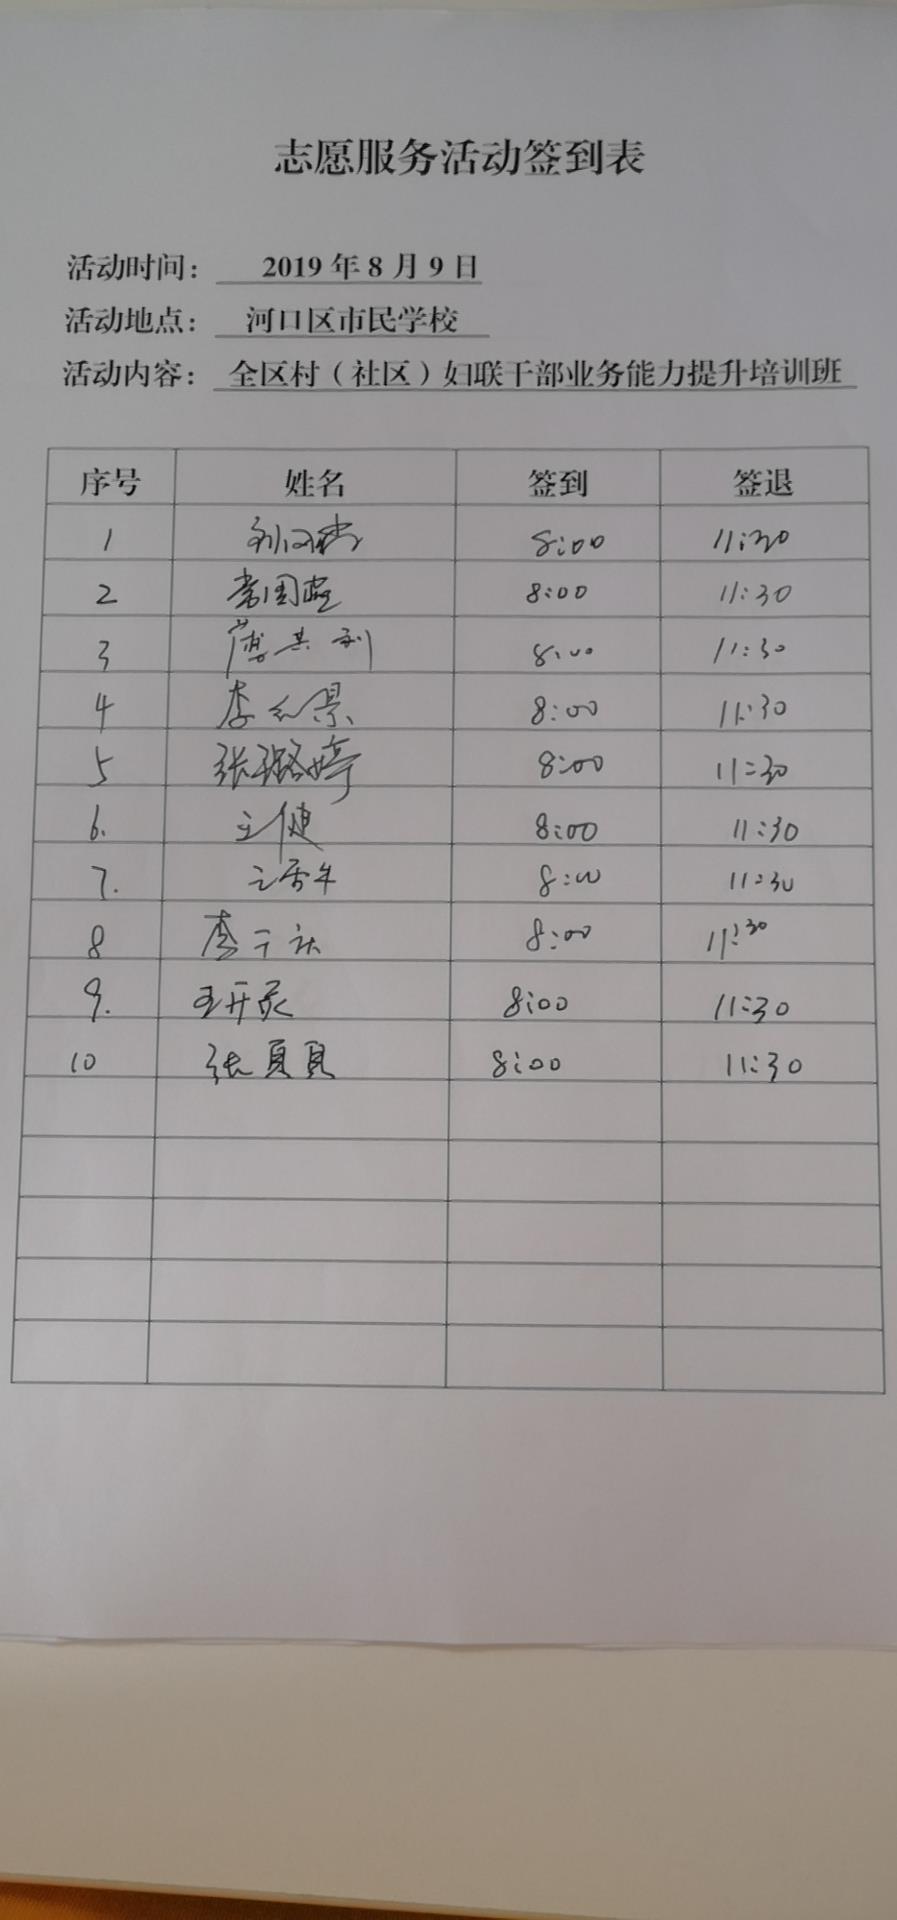 志愿服务活动签到表
活动时间： 2019 年 8 月 9 日
活动地点： 河口区市民学校
活动内容： 全区村（社区）妇联干部业务能力提升培训班
序号 姓名 签到 签退
1 8:00 11:30
2 8:00 11:30
3 8:00 11:30
4 8:00 11:30
5 张璐婷 8:00 11:30
6. 王健 8:00 11:30
7. 8:00 11:30
8 李 8:00 11:30
9. 王开 8:00 11:30
10 张 8:00 11:30